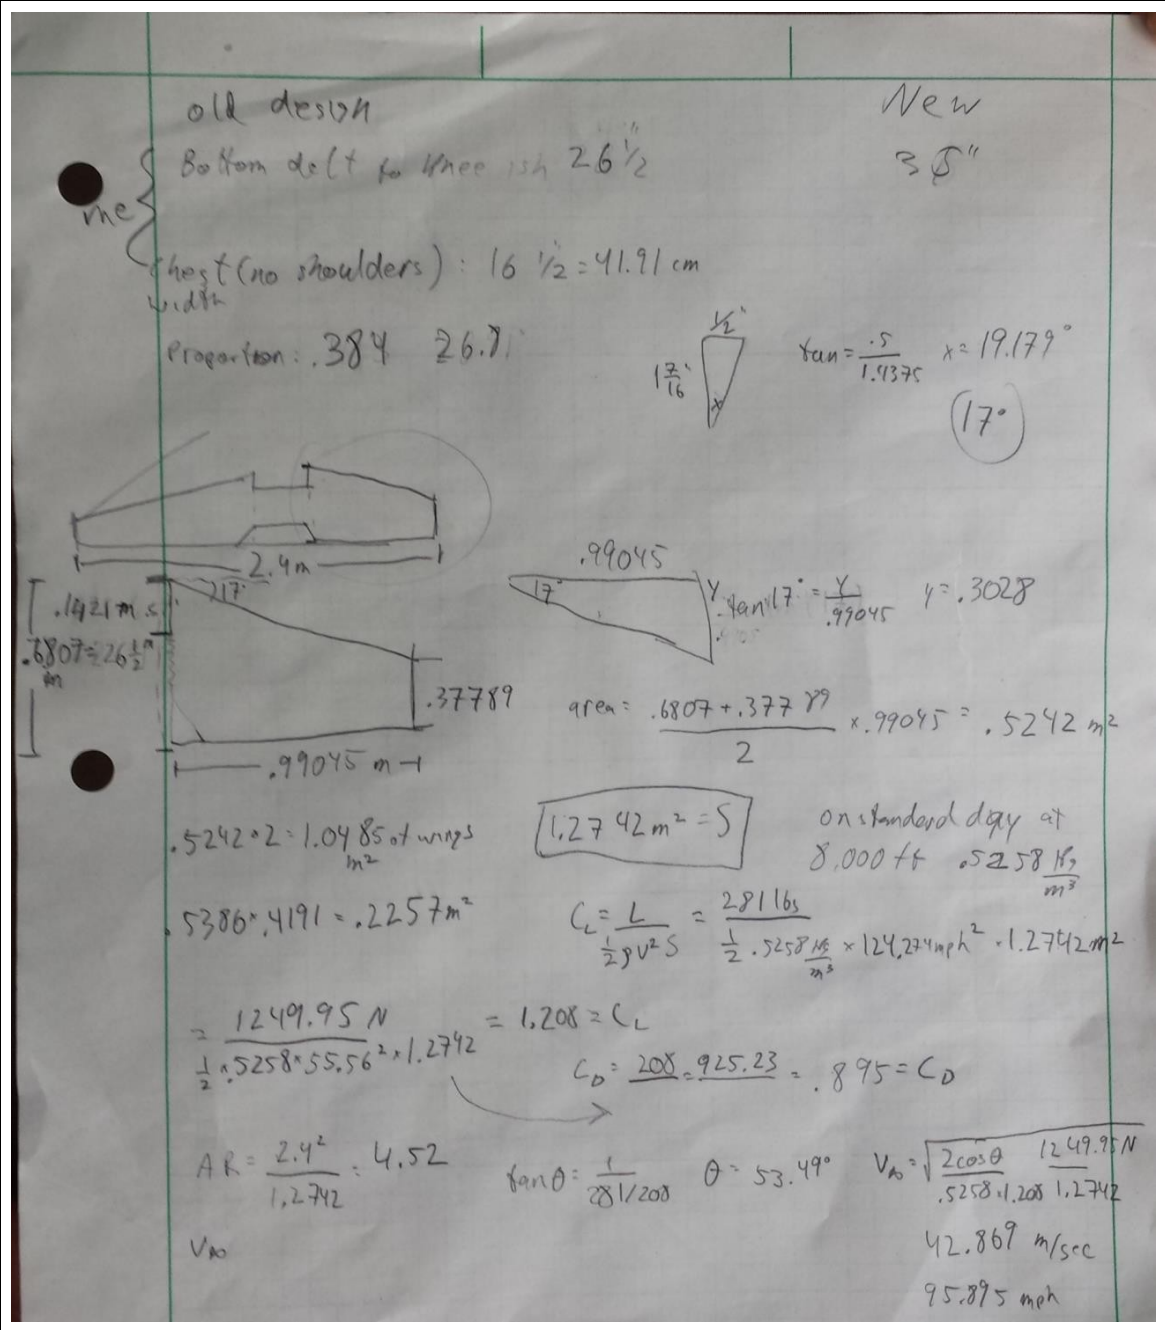 old design
New
Bottom delt to knee ish 26 1/2"
35"
me
Chest (no shoulders) : 16 1/2 = 41.91 cm
width
Proportion: .384 26.8
1/2"
1 7/16"
x
tan = .5/1.4375 x = 19.179°
17°
2.4m
.1421 m
17°
.6807 = 26 1/2"
m
.37789
.99045 m
.99045
17°
y
tan 17° = y/.99045 y = .3028
area = (.6807 + .37789)/2 × .99045 = .5242 m²
.5242 • 2 = 1.0485 of wings
m²
1.2742 m² = S
on standard day at
8,000 ft .5258 kg/m³
.5386 × .4191 = .2257 m²
C_L = L/(1/2 ρV²S) = 281 lbs/(1/2 .5258 kg/m³ × 124.274 mph² • 1.2742 m²)
= 1249.95 N/(1/2 × .5258 × 55.56² × 1.2742) = 1.208 = C_L
C_D = 208 = 925.23 = .895 = C_D
AR = 2.4²/1.2742 = 4.52
tan θ = 1/(281/208) θ = 53.49°
V∞ = √(2cosθ/(.5258 • 1.208) 1249.95 N/1.2742)
42.869 m/sec
V∞
95.895 mph